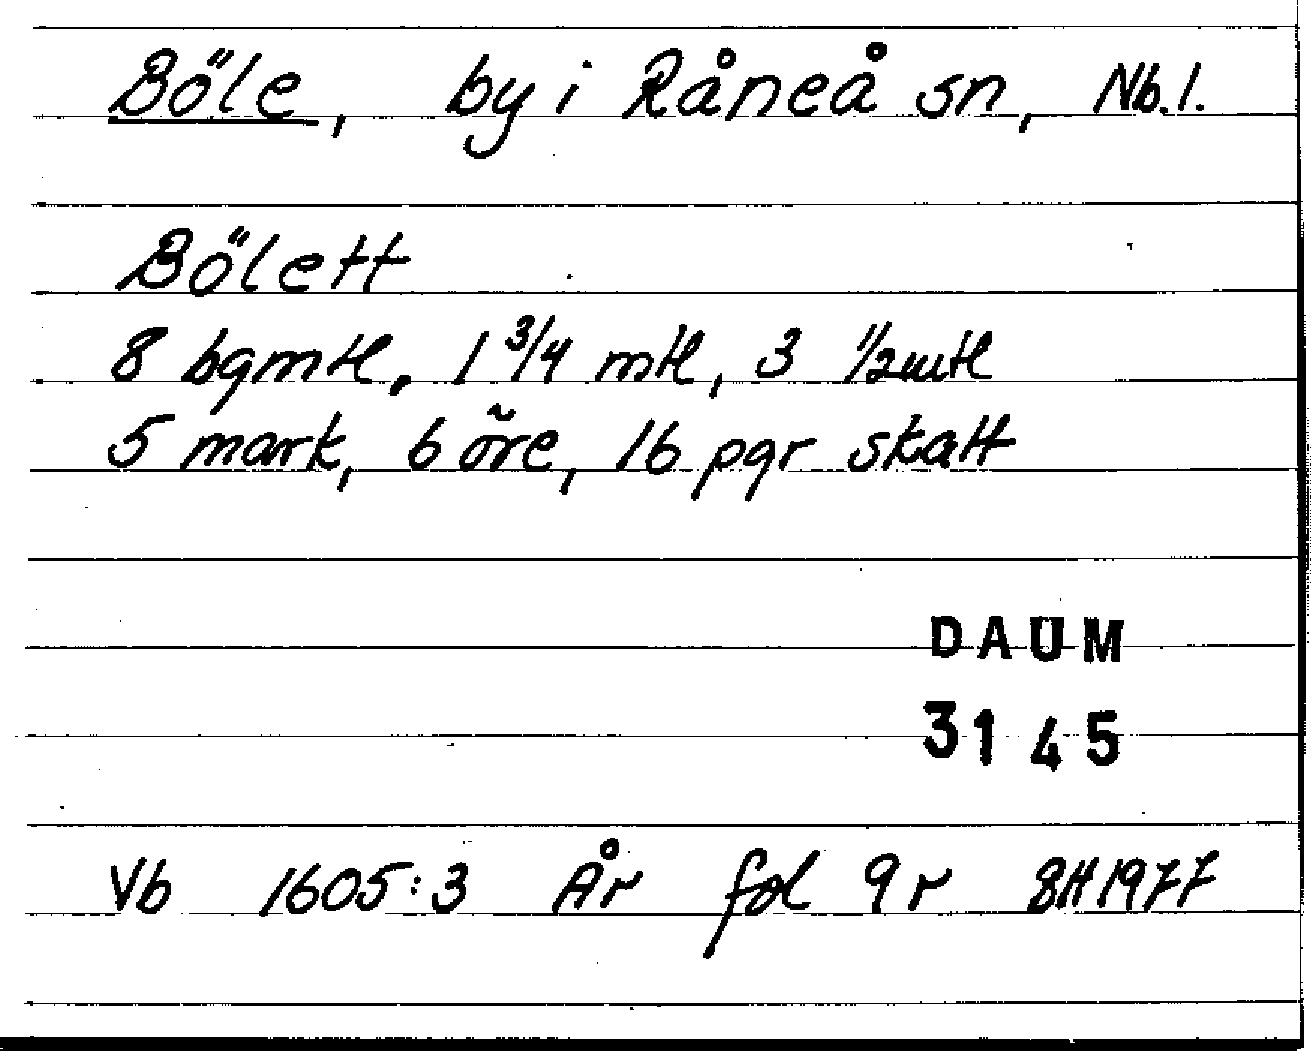 Böle, by i Råneå sn, Nb.l.
Bölett
8 bgmtl, 1 3/4 mtl, 3 1/2mtl
5 mark, 6 öre, 16 pgr skatt
DAUM
3145
Vb 1605:3 År fol 9r BH1977